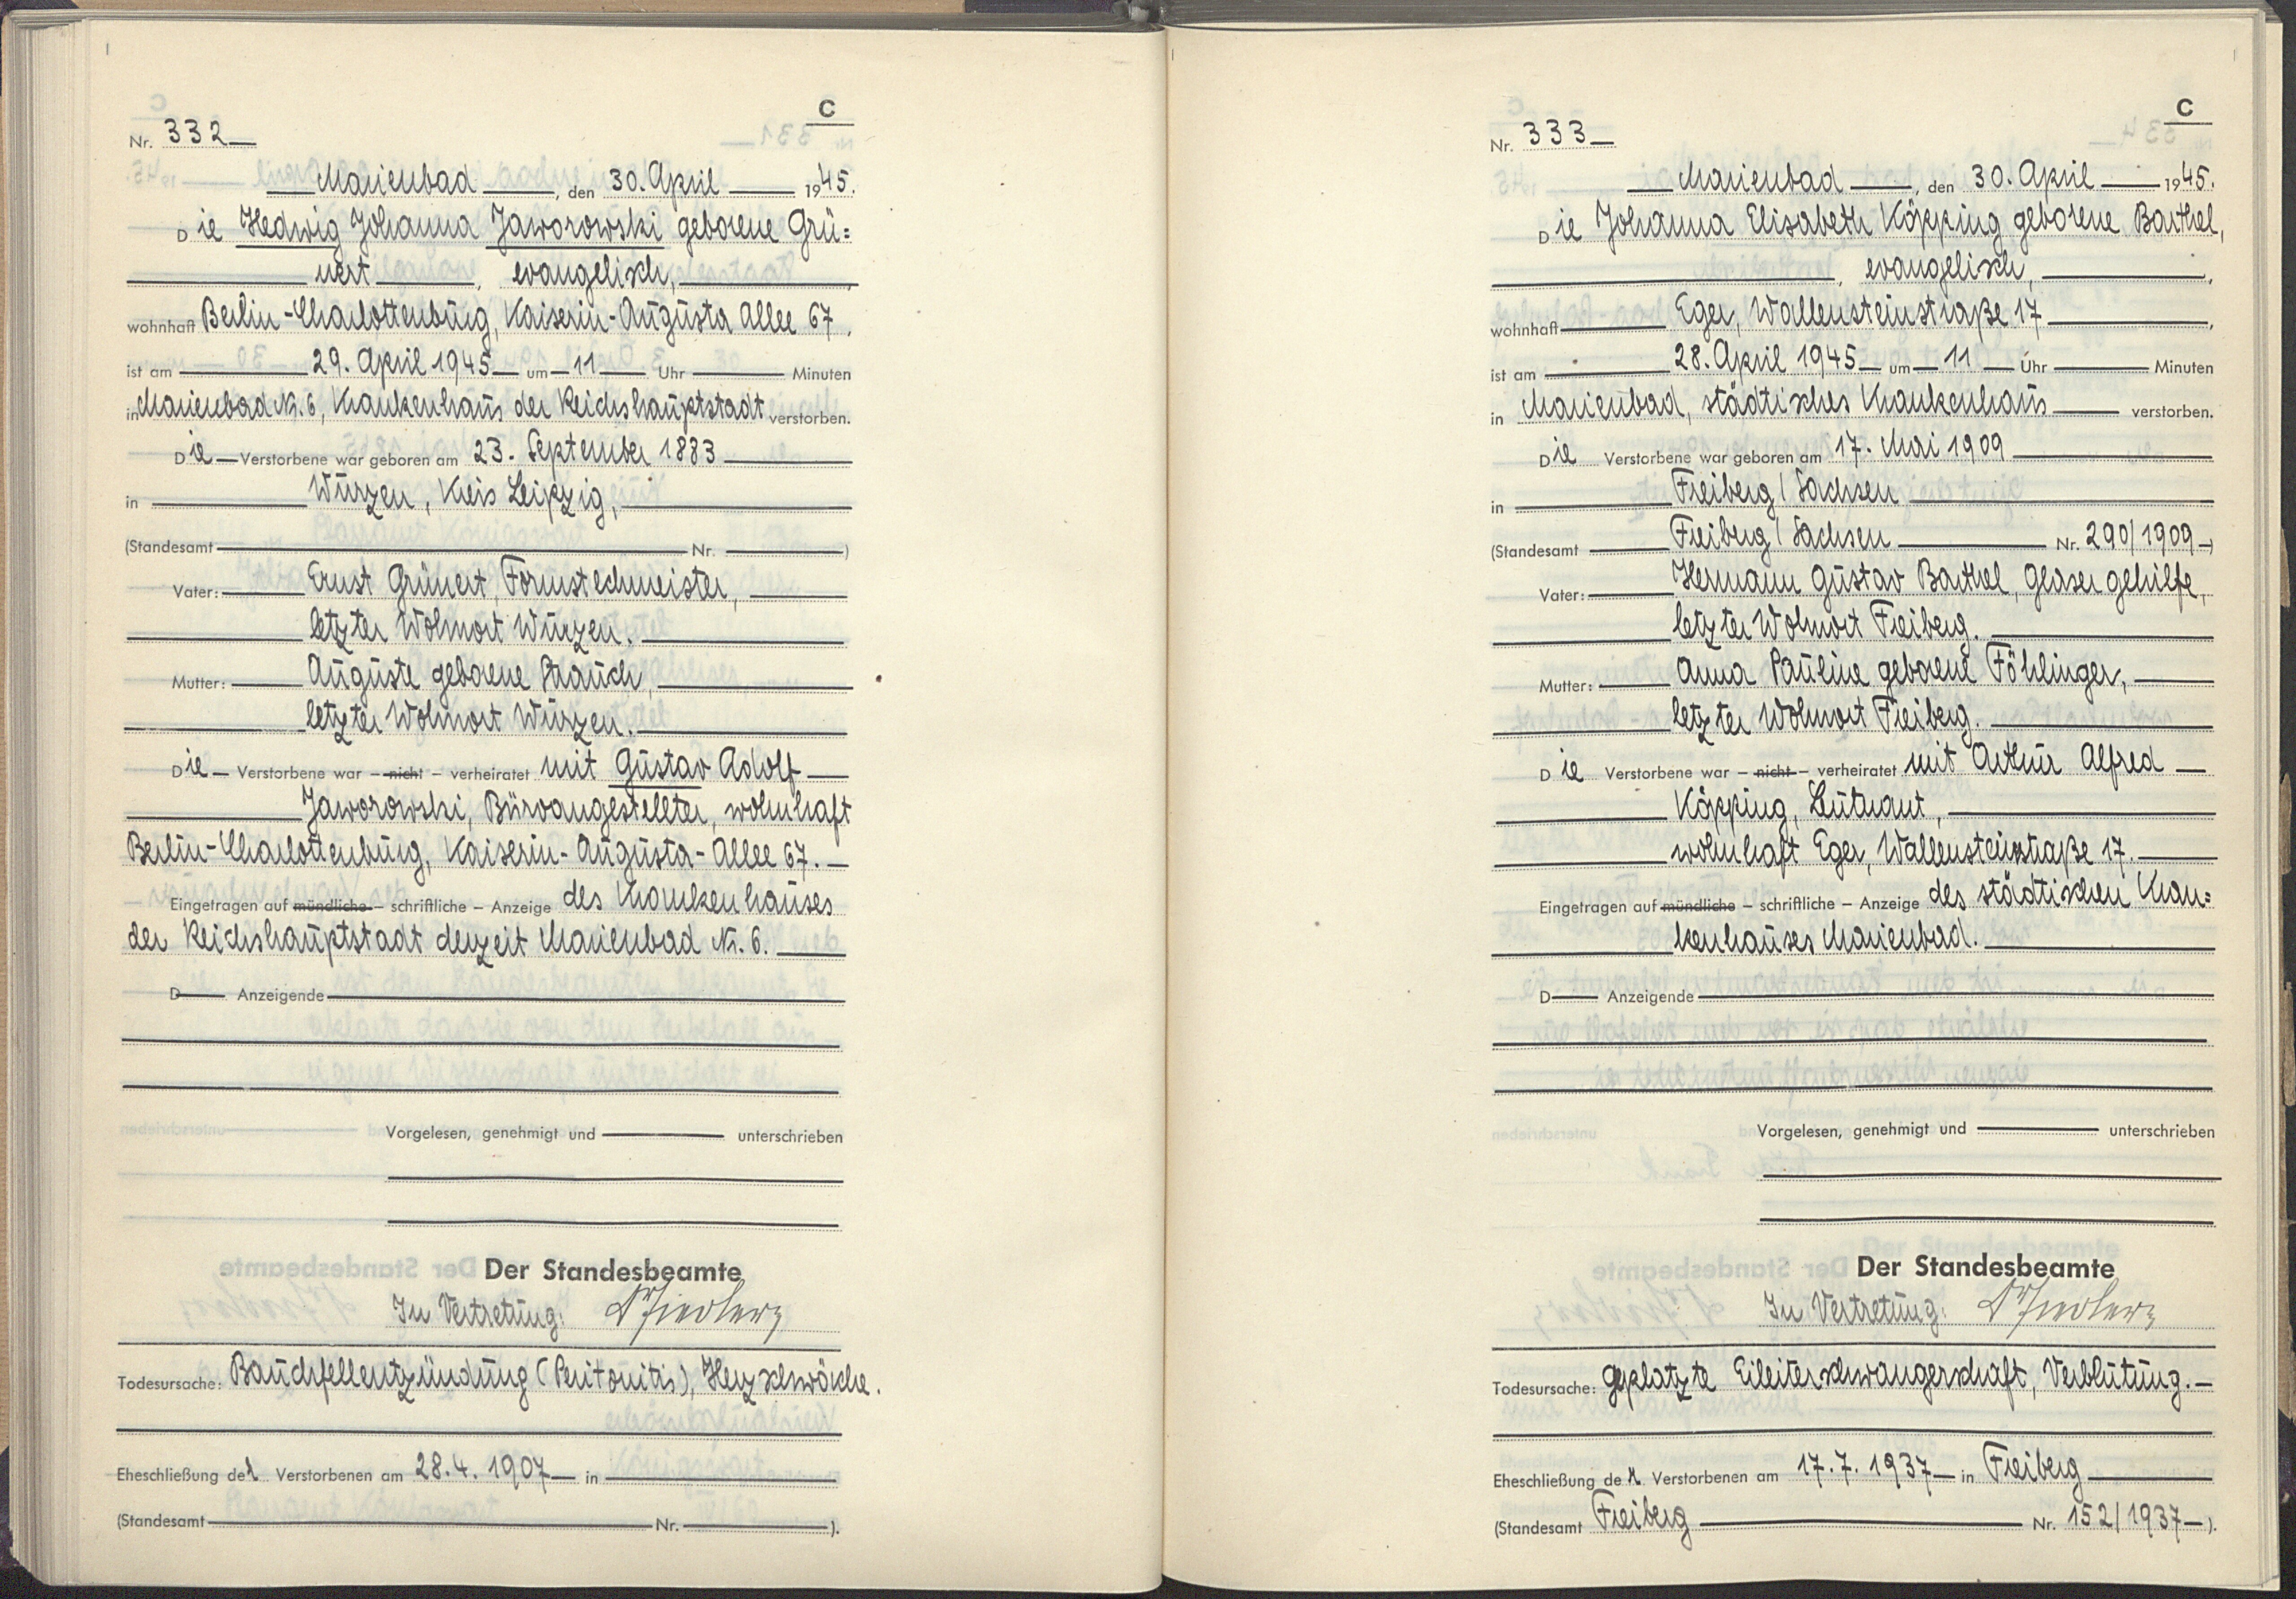 C
Nr. 332
Marienbad, den 30. April 1945.
Die Hedwig Johanna Jaworowski geborene Grü=
nert, evangelisch,
wohnhaft Berlin-Charlottenburg, Kaiserin-Augusta Allee 67,
ist am 29. April 1945 um 11 Uhr Minuten
in Marienbad Nr. 6, Krankenhaus der Reichshauptstadt verstorben.
Die Verstorbene war geboren am 23. September 1883
in Wurzen, Kreis Leipzig,
(Standesamt Nr. )
Vater: Ernst Grünert, Formstechmeister,
letzter Wohnort Wurzen.
Mutter: Auguste geborene Strauch,
letzter Wohnort Wurzen.
Die Verstorbene war – nicht – verheiratet mit Gustav Adolf
Jaworowski, Büroangestellter, wohnhaft
Berlin-Charlottenburg, Kaiserin-Augusta-Allee 67.
Eingetragen auf mündliche – schriftliche – Anzeige des Krankenhauses
der Reichshauptstadt derzeit Marienbad Nr. 6.
D Anzeigende
Vorgelesen, genehmigt und unterschrieben
Der Standesbeamte
In Vertretung:
Todesursache: Bauchfellentzündung (Peritonitis), Herzschwäche.
Eheschließung der Verstorbenen am 28.4.1907 in
(Standesamt Nr. ).
C
Nr. 333
Marienbad, den 30. April 1945.
Die Johanna Elisabeth Köpping geborene Barthel,
, evangelisch,
wohnhaft Eger, Wallensteinstraße 17,
ist am 28. April 1945 um 11 Uhr Minuten
in Marienbad, städtisches Krankenhaus verstorben.
Die Verstorbene war geboren am 17. Mai 1909
in Freiberg/Sachsen
(Standesamt Freiberg/Sachsen Nr. 290/1909)
Vater: Hermann Gustav Barthel, Glasergehilfe,
letzter Wohnort Freiberg.
Mutter: Anna Pauline geborene Föhlinger,
letzter Wohnort Freiberg.
Die Verstorbene war – nicht – verheiratet mit Arthur Alfred
Köpping, Leutnant,
wohnhaft Eger, Wallensteinstraße 17.
Eingetragen auf mündliche – schriftliche – Anzeige des städtischen Kran=
kenhauses Marienbad.
D Anzeigende
Vorgelesen, genehmigt und unterschrieben
Der Standesbeamte
In Vertretung:
Todesursache: geplatzte Eileiterschwangerschaft, Verblutung.
Eheschließung der Verstorbenen am 17.7.1937 in Freiberg
(Standesamt Freiberg Nr. 152/1937).